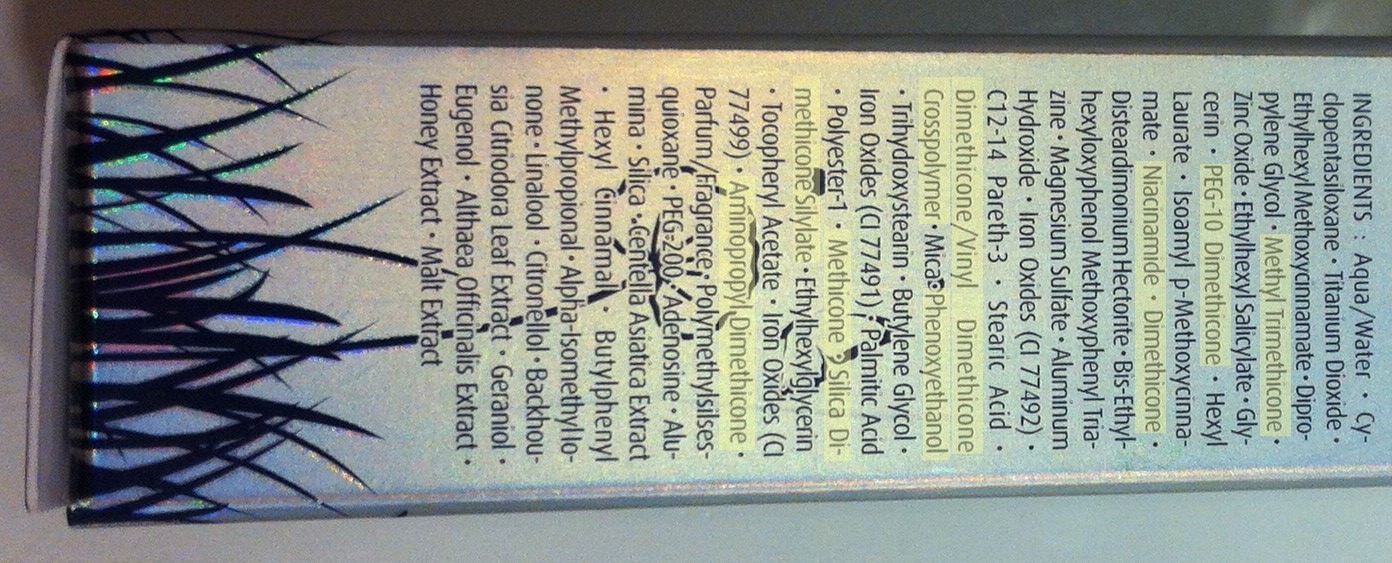 INGREDIENTS : Aqua/Water • Cy-
clopentasiloxane • Titanium Dioxide •
Ethylhexyl Methoxycinnamate • Dipro-
pylene Glycol • Methyl Trimethicone •
Zinc Oxide • Ethylhexyl Salicylate • Gly-
cerin • PEG-10 Dimethicone • Hexyl
Laurate • Isoamyl p-Methoxycinna-
mate • Niacinamide • Dimethicone •
Disteardimonium Hectorite • Bis-Ethyl-
hexyloxyphenol Methoxyphenyl Tria-
zine • Magnesium Sulfate • Aluminum
Hydroxide • Iron Oxides (CI 77492) •
C12-14 Pareth-3 • Stearic Acid •
Dimethicone/Vinyl Dimethicone
Crosspolymer • Mica • Phenoxyethanol
• Trihydroxystearin • Butylene Glycol •
Iron Oxides (CI 77491) • Palmitic Acid
• Polyester-1 • Methicone • Silica Di-
methicone Silylate • Ethylhexylglycerin
• Tocopheryl Acetate • Iron Oxides (CI
77499) • Aminopropyl Dimethicone •
Parfum/Fragrance • Polymethylsilses-
quioxane • PEG-200 • Adenosine • Alu-
mina • Silica • Centella Asiatica Extract
• Hexyl Cinnamal • Butylphenyl
Methylpropional • Alpha-Isomethyl Io-
none • Linalool • Citronellol • Backhou-
sia Citriodora Leaf Extract • Geraniol •
Eugenol • Althaea Officinalis Extract •
Honey Extract • Malt Extract